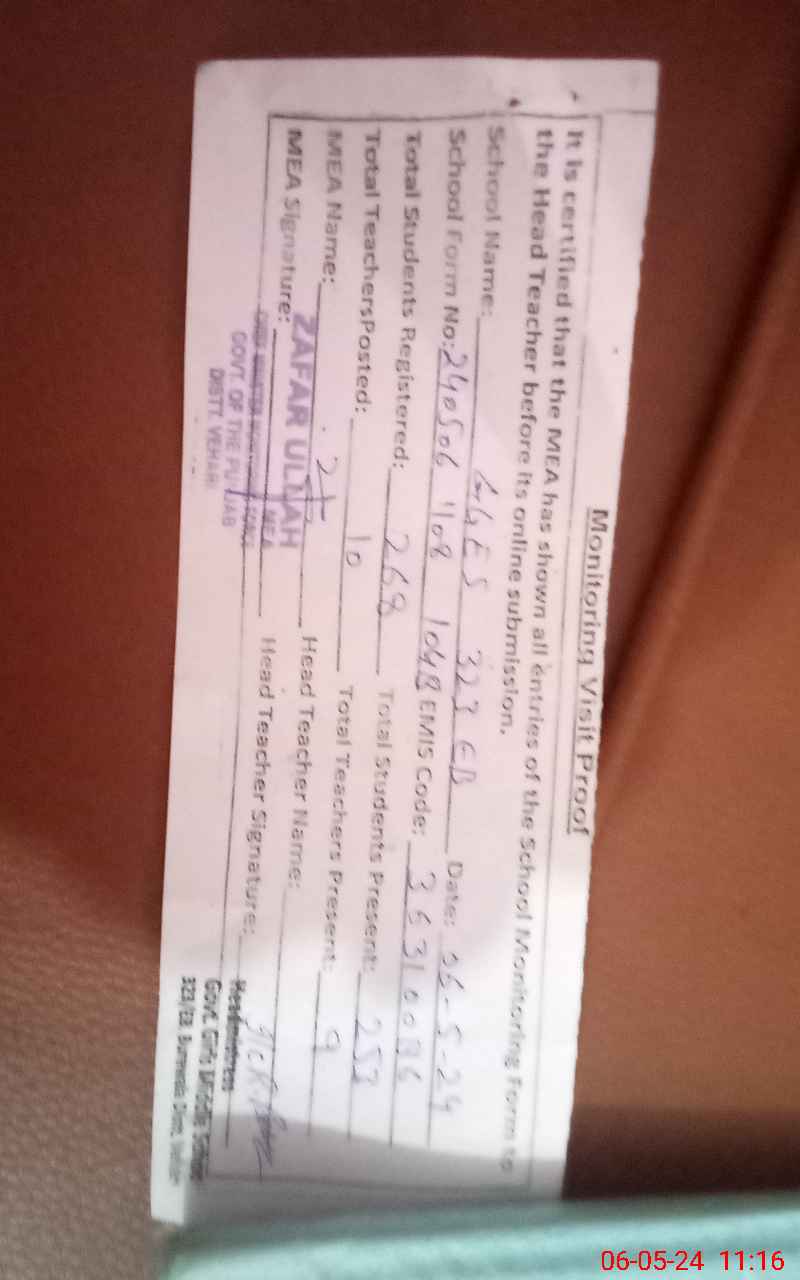 Monitoring Visit Proof
It is certified that the MEA has shown all entries of the School Monitoring Form to
the Head Teacher before its online submission.
School Name: GGES 323 EB Date: 06-5-24
School Form No: 240506 1108 1048 EMIS Code: 36310086
Total Students Registered: 268 Total Students Present: 253
Total TeachersPosted: 10 Total Teachers Present: 9
MEA Name: ZAFAR ULLAH Head Teacher Name:
MEA Signature: Head Teacher Signature:
MEA
GOVT. OF THE PUNJAB
DISTT. VEHARI
Headmistress
Govt. Girls Middle School
323/EB
06-05-24 11:16